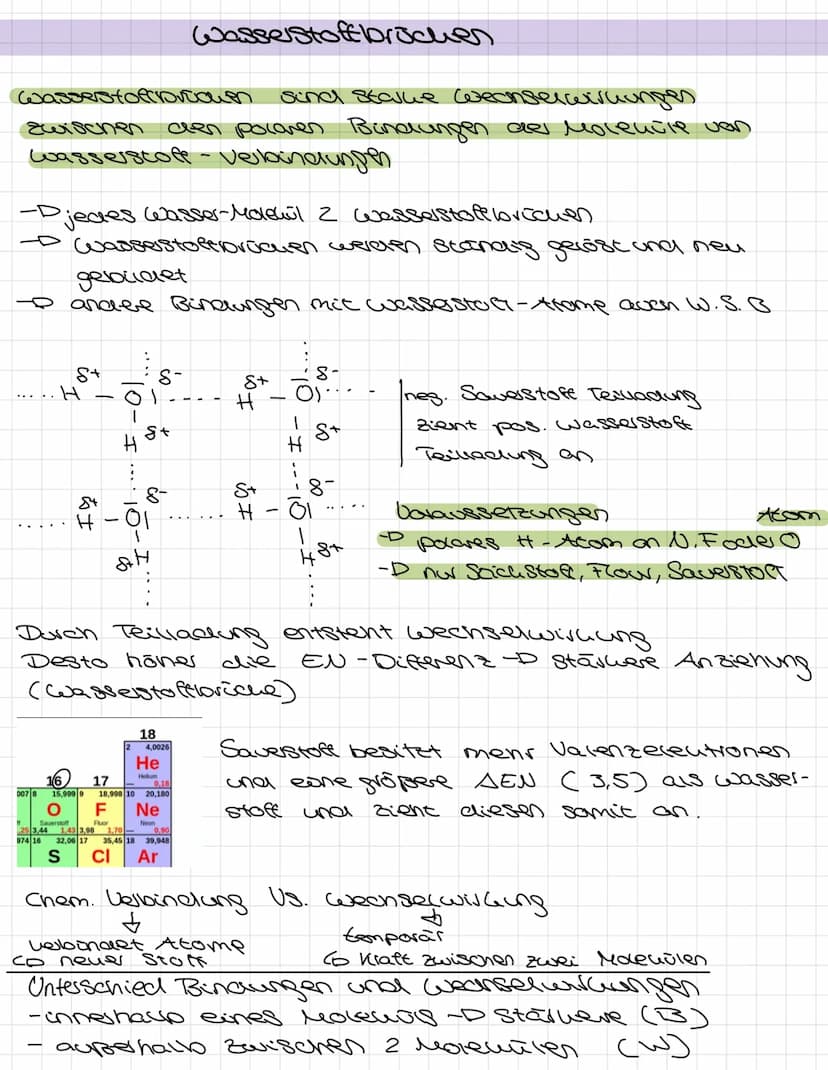 Wasserstoffbrücken
Wasserstoffbrücken sind starke Wechselwirkungen
zwischen den polaren Bindungen der Moleküle von
Wasserstoff - Verbindungen
→ jedes Wasser-Molekül 2 Wasserstoffbrücken
→ Wasserstoffbrücken werden ständig gelöst und neu
gebildet
→ andere Bindungen mit Wasserstoff-Atome auch W.S.B
δ+ δ- δ+ δ-
H - O H - O
H δ+ H δ+
neg. Sauerstoff Teilladung
zieht pos. Wasserstoff
Teilladung an
δ+ δ- δ+ δ-
H - O H - O
δ+ H H δ+
Voraussetzungen Atom
→ polares H-Atom an N, F oder O
→ nur Stickstoff, Flour, Sauerstoff
Durch Teilladung entsteht Wechselwirkung
Desto höher die EN-Differenz → stärkere Anziehung
(Wasserstoffbrücke)
18
2 4,0026
He
Helium
— 0,18
16 17
007 8 15,999 9 18,998 10 20,180
O F Ne
Sauerstoff Fluor Neon
,25 3,44 1,43 3,98 1,70 — 0,90
974 16 32,06 17 35,45 18 39,948
S Cl Ar
Sauerstoff besitzt mehr Valenzelektronen
und eine größere ΔEN (3,5) als Wasser-
stoff und zieht diesen somit an.
Chem. Verbindung Vs. Wechselwirkung
verbindet Atome temporär
↳ neuer Stoff ↳ Kraft zwischen zwei Molekülen
Unterschied Bindungen und Wechselwirkungen
- innerhalb eines Moleküls → stärkere (B)
- außerhalb zwischen 2 Molekülen (W)